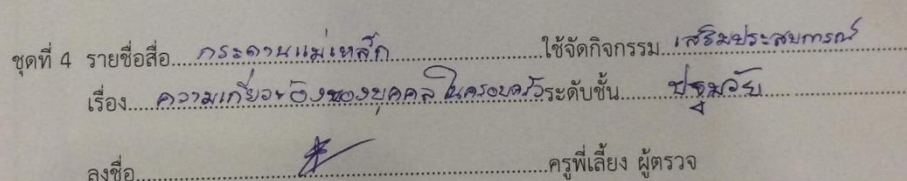 ชุดที่ 4 รายชื่อสื่อ....กระดานแม่เหล็ก....ใช้จัดกิจกรรม....เสริมประสบการณ์
เรื่อง....ความเกี่ยวข้องของบุคคลในครอบครัว....ระดับชั้น....ปฐมวัย....
ลงชื่อ........ครูพี่เลี้ยง ผู้ตรวจ